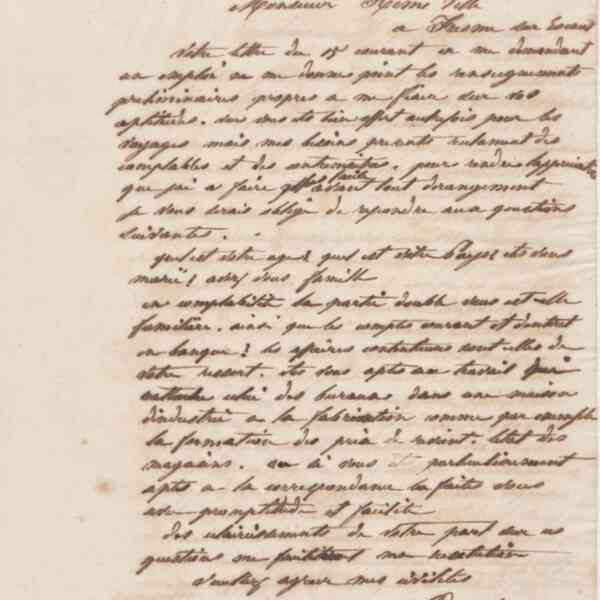 Monsieur
a Fresne sur Escaut
Votre lettre du 15 courant en me demandant
un emploi ne me donne point les renseignements
preliminaires propres a me fixer sur vos
aptitudes. vous vous etes bien offert autrefois pour les
voyages mais mes besoins presents reclament des
comptables et des contremaitres. pour rendre
que j'ai a faire plus facile avant tout derangement
je vous serais obligé de repondre aux questions
suivantes.
quel est votre age? quel est votre Pays? etes vous
marié? avez vous famille
en comptabilité la partie double vous est elle
familière. ainsi que les comptes courant et d'interet
en banque? les affaires contentieuses sont elles de
votre ressort. etes vous apte au travail
celui des bureaux dans une maison
d'industrie a la fabrication comme par exemple
la formation des prix de revient. l'etat des
magasins. ou si vous particulierement
apte a la correspondance la faites vous
avec promptitude et facilité
des eclaircissements de votre part sur ces
questions me ma resolution
veuillez agreer mes civilités